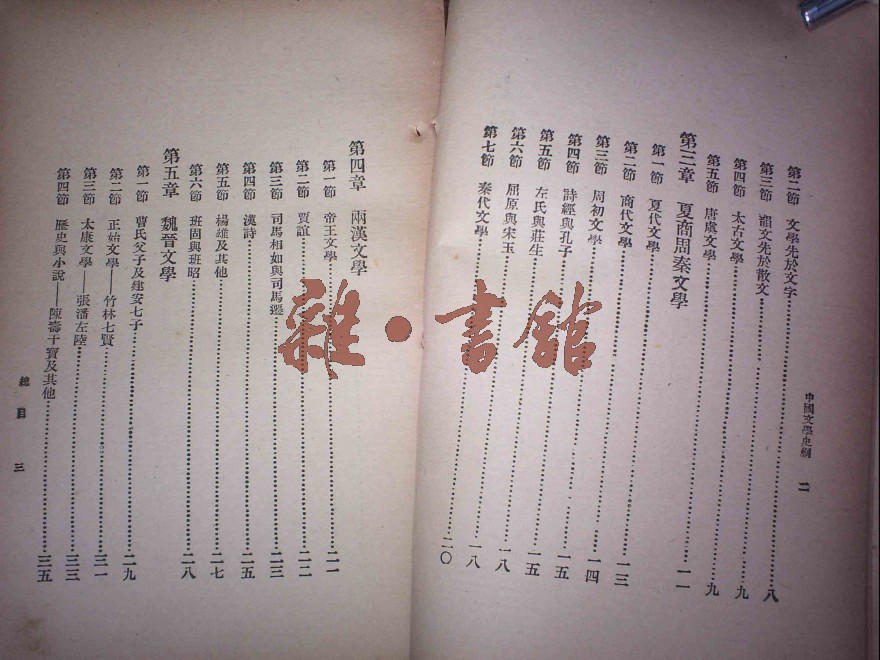 中國文學史綱 二
第二節 文學先於文字……八
第三節 韻文先於散文……九
第四節 太古文學……九
第五節 唐虞文學……一一
第三章 夏商周秦文學
第一節 夏代文學……一三
第二節 商代文學……一四
第三節 周初文學……一五
第四節 詩經與孔子……一五
第五節 左氏與莊生……一八
第六節 屈原與宋玉……一八
第七節 秦代文學……二〇
第四章 兩漢文學
第一節 帝王文學……二一
第二節 賈誼……二二
第三節 司馬相如與司馬遷……二三
第四節 漢詩……二五
第五節 楊雄及其他……二七
第六節 班固與班昭……二八
第五章 魏晉文學
第一節 曹氏父子及建安七子……二九
第二節 正始文學——竹林七賢……三一
第三節 太康文學——張潘左陸……三三
第四節 歷史與小說——陳壽干寶及其他……三五
總目 三
雜·書館